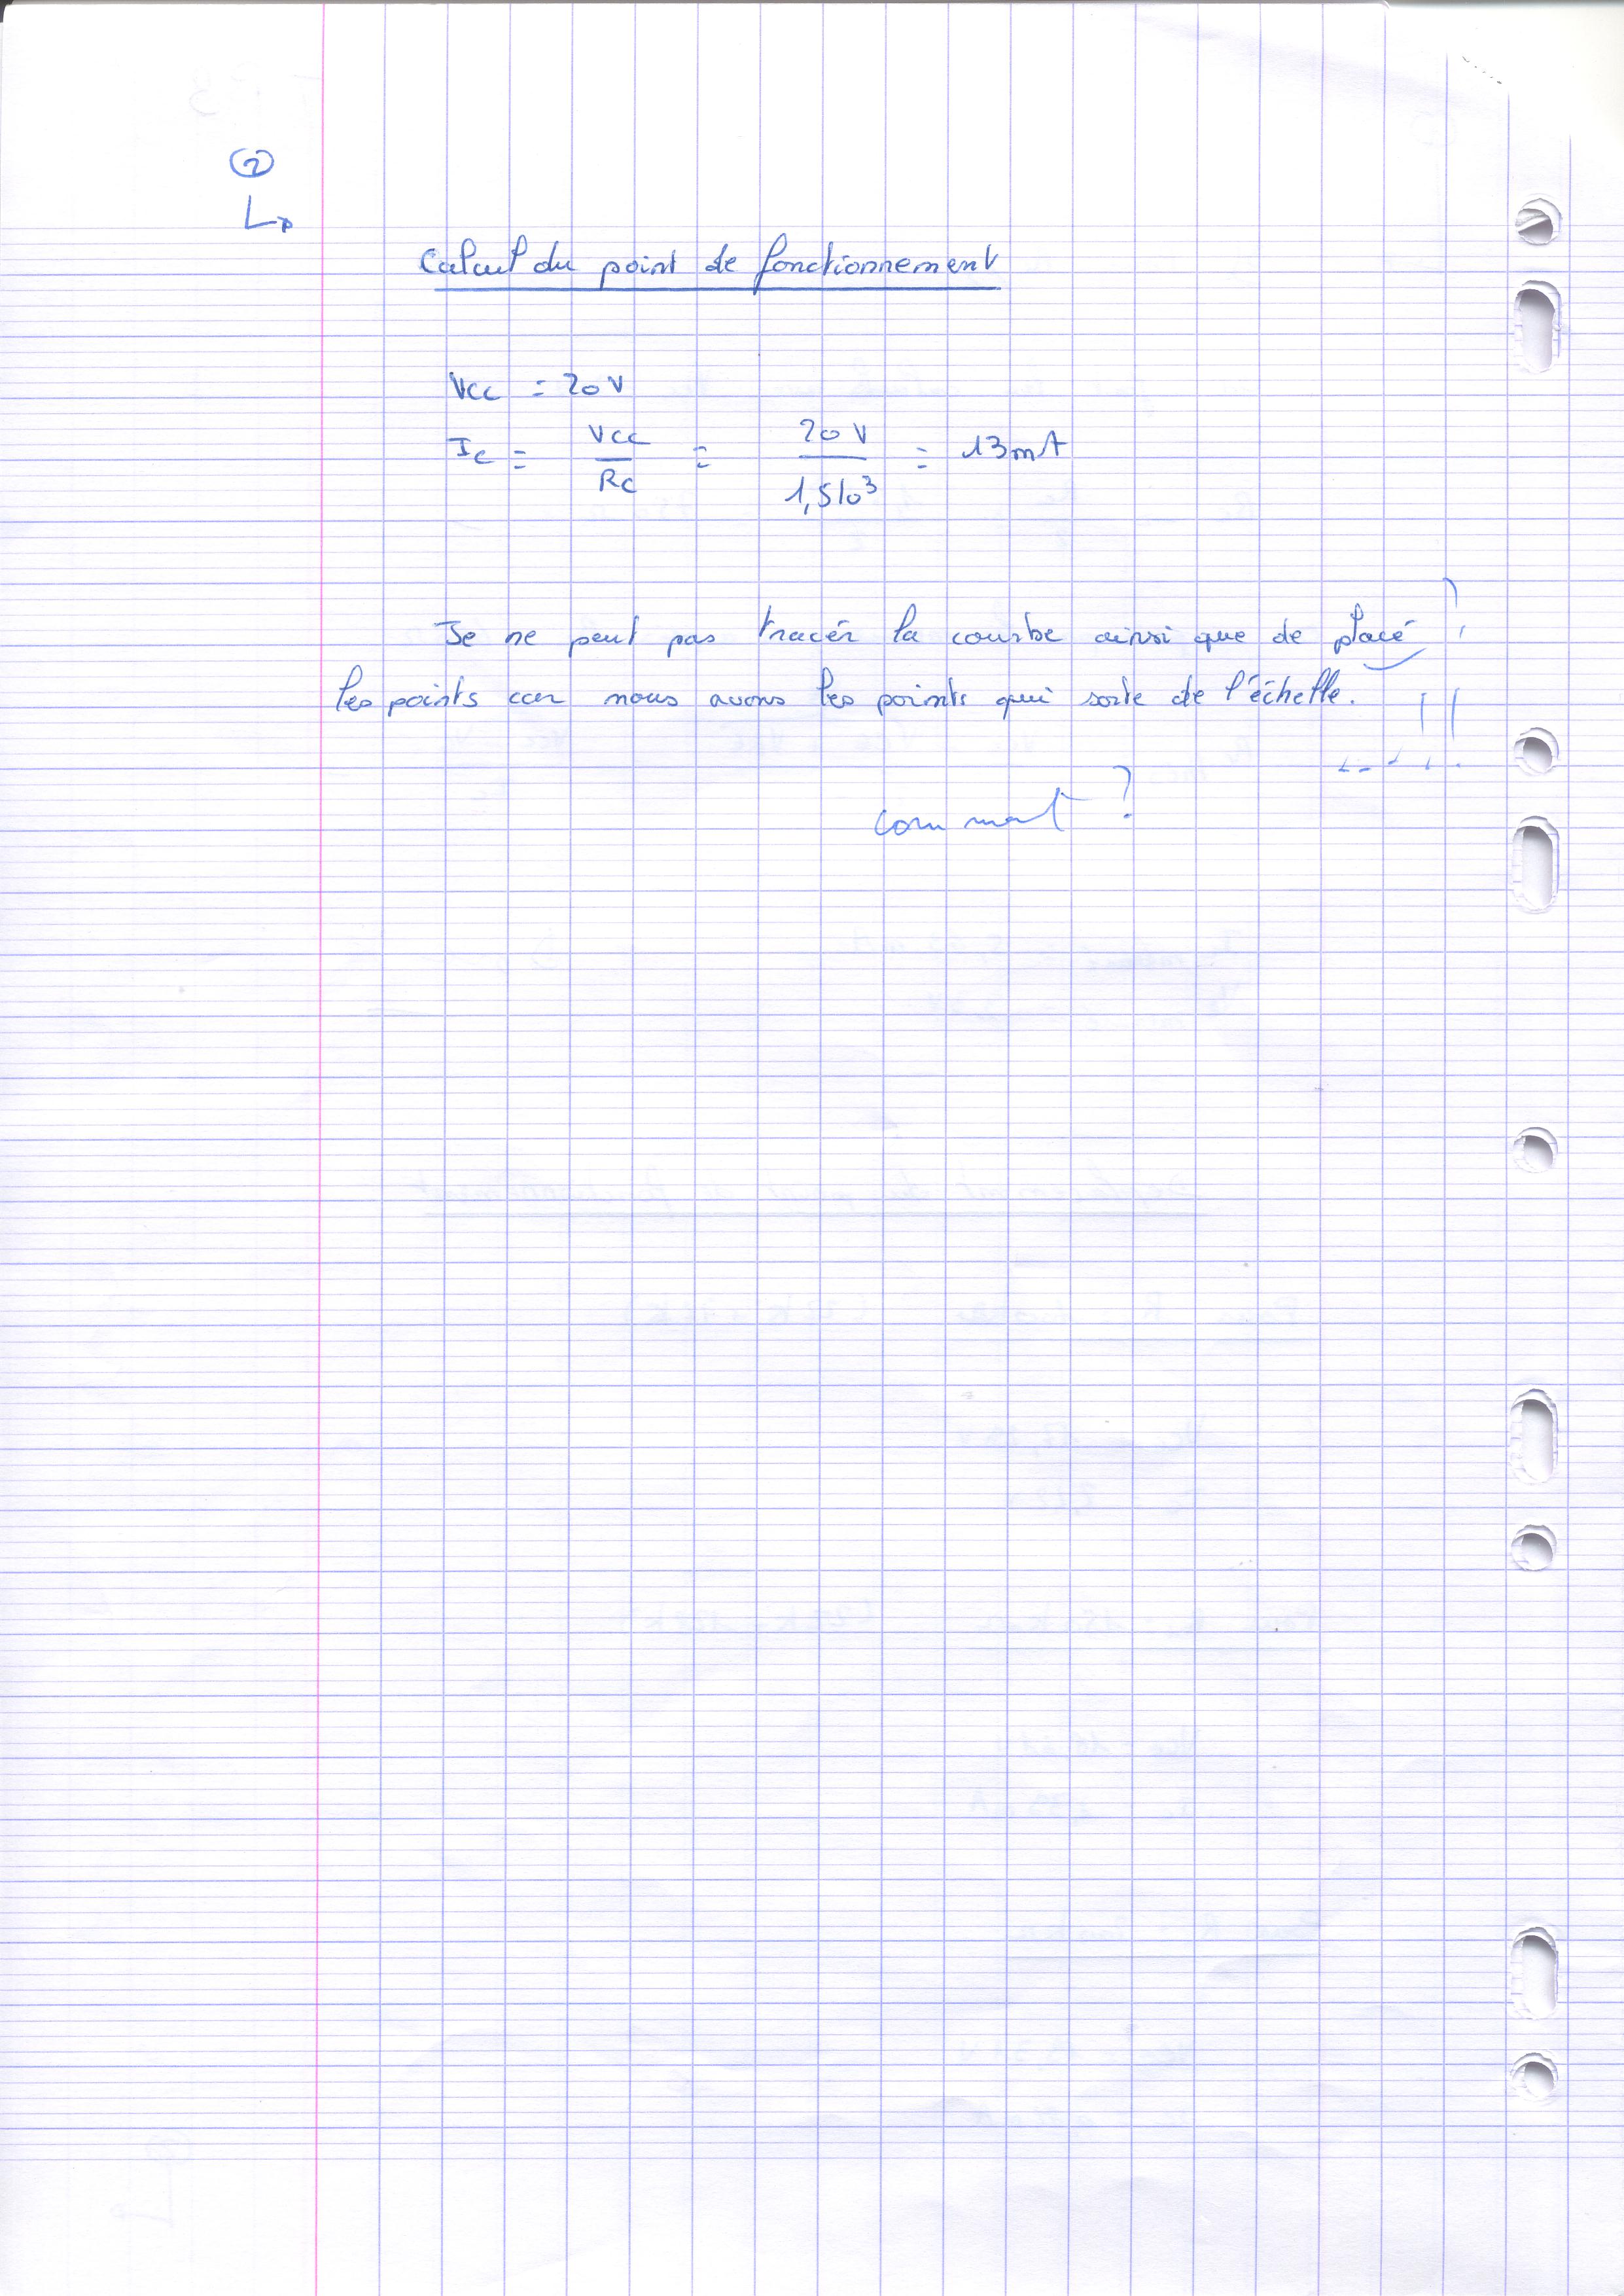 ②
Calcul du point de fonctionnement
Vcc = 20 V
Ic = Vcc / Rc = 20 V / 1,5 10³ = 13 mA
Je ne peut pas tracér la courbe ainsi que de placé ?
les points car nous avons les points qui sorte de l'échelle. !!
comment ?